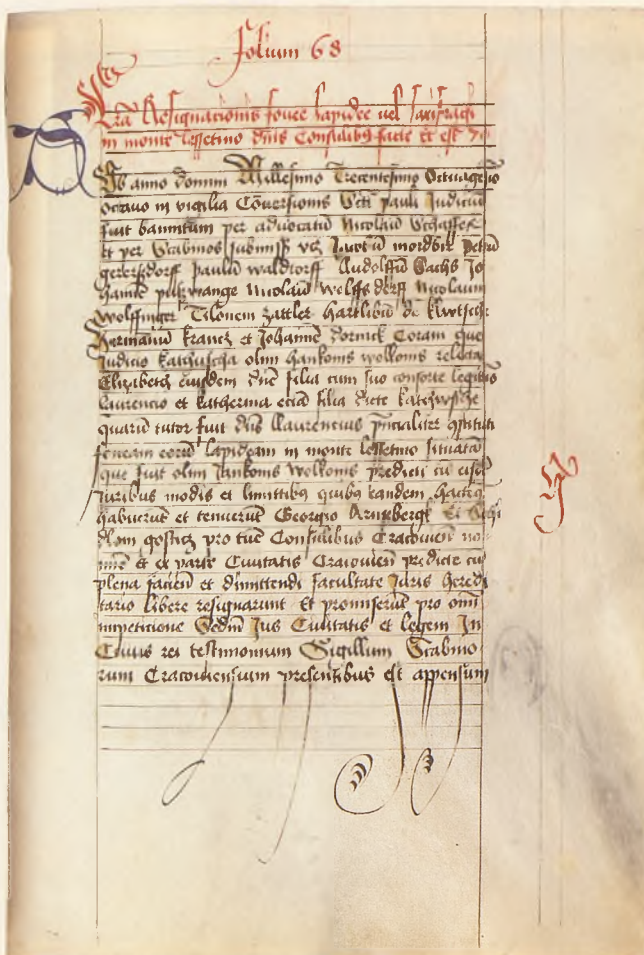 Folium 68
Lra Resignacionis fovee lapidee vel saxifragii
in monte Lessetino dnis Consulibus facte Et est
Sub anno domini Millesimo Trecentesimo Octuagesimo
octavo in vigilia Coversionis Scti pauli Judiciu
fuit bannitum per advocatu Nicolau
et per Scabinos Mordbir petru
gerersdorff paulu waldorff Rudolffu Sachs Jo
hanne putzwange Nicolau wolffsdorff Nicolaum
wolffinger Tilonem zattler hartlibu de klwtschr
Hermannu krancz et Johanne dornick Coram quo
Judicio katherscha olim hankonis wolkonis relicta
Elizabeth eiusdem dne filia cum suo consorte legittimo
laurencio et katherina ecia filia dicte
quaru tutor fuit dns llaurencius
foveam eoru lapideam in monte lessetino situata
que fuit olim Jankonis Wolkonis predicti cu eisde
Juribus modis et limitibus quibus eandem hacten9
habuerut et tenuerut Georgio Arnsbergk Et
gostich pro tuc Consulibus Cracovien no
mie et ex parte Civitatis Cracovien predicte cu
plena facien et dimittendi facultate Juris heredi
tario libere resignarunt Et promiserut pro omi
impeticione Sedm Jus Civitatis et legem In
Cuius rei testimonium Sigillum Scabino
rum Cracoviensium presentibus est appensum